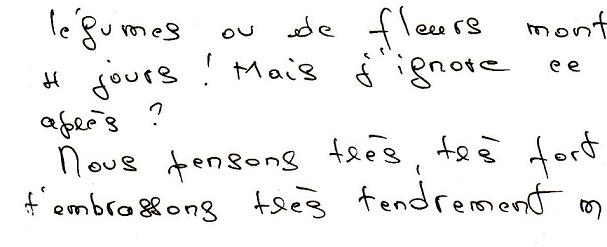 légumes ou de fleurs mont
jours ! Mais j'ignore ce
après ?
Nous pensons très, très fort
t'embrassons très tendrement